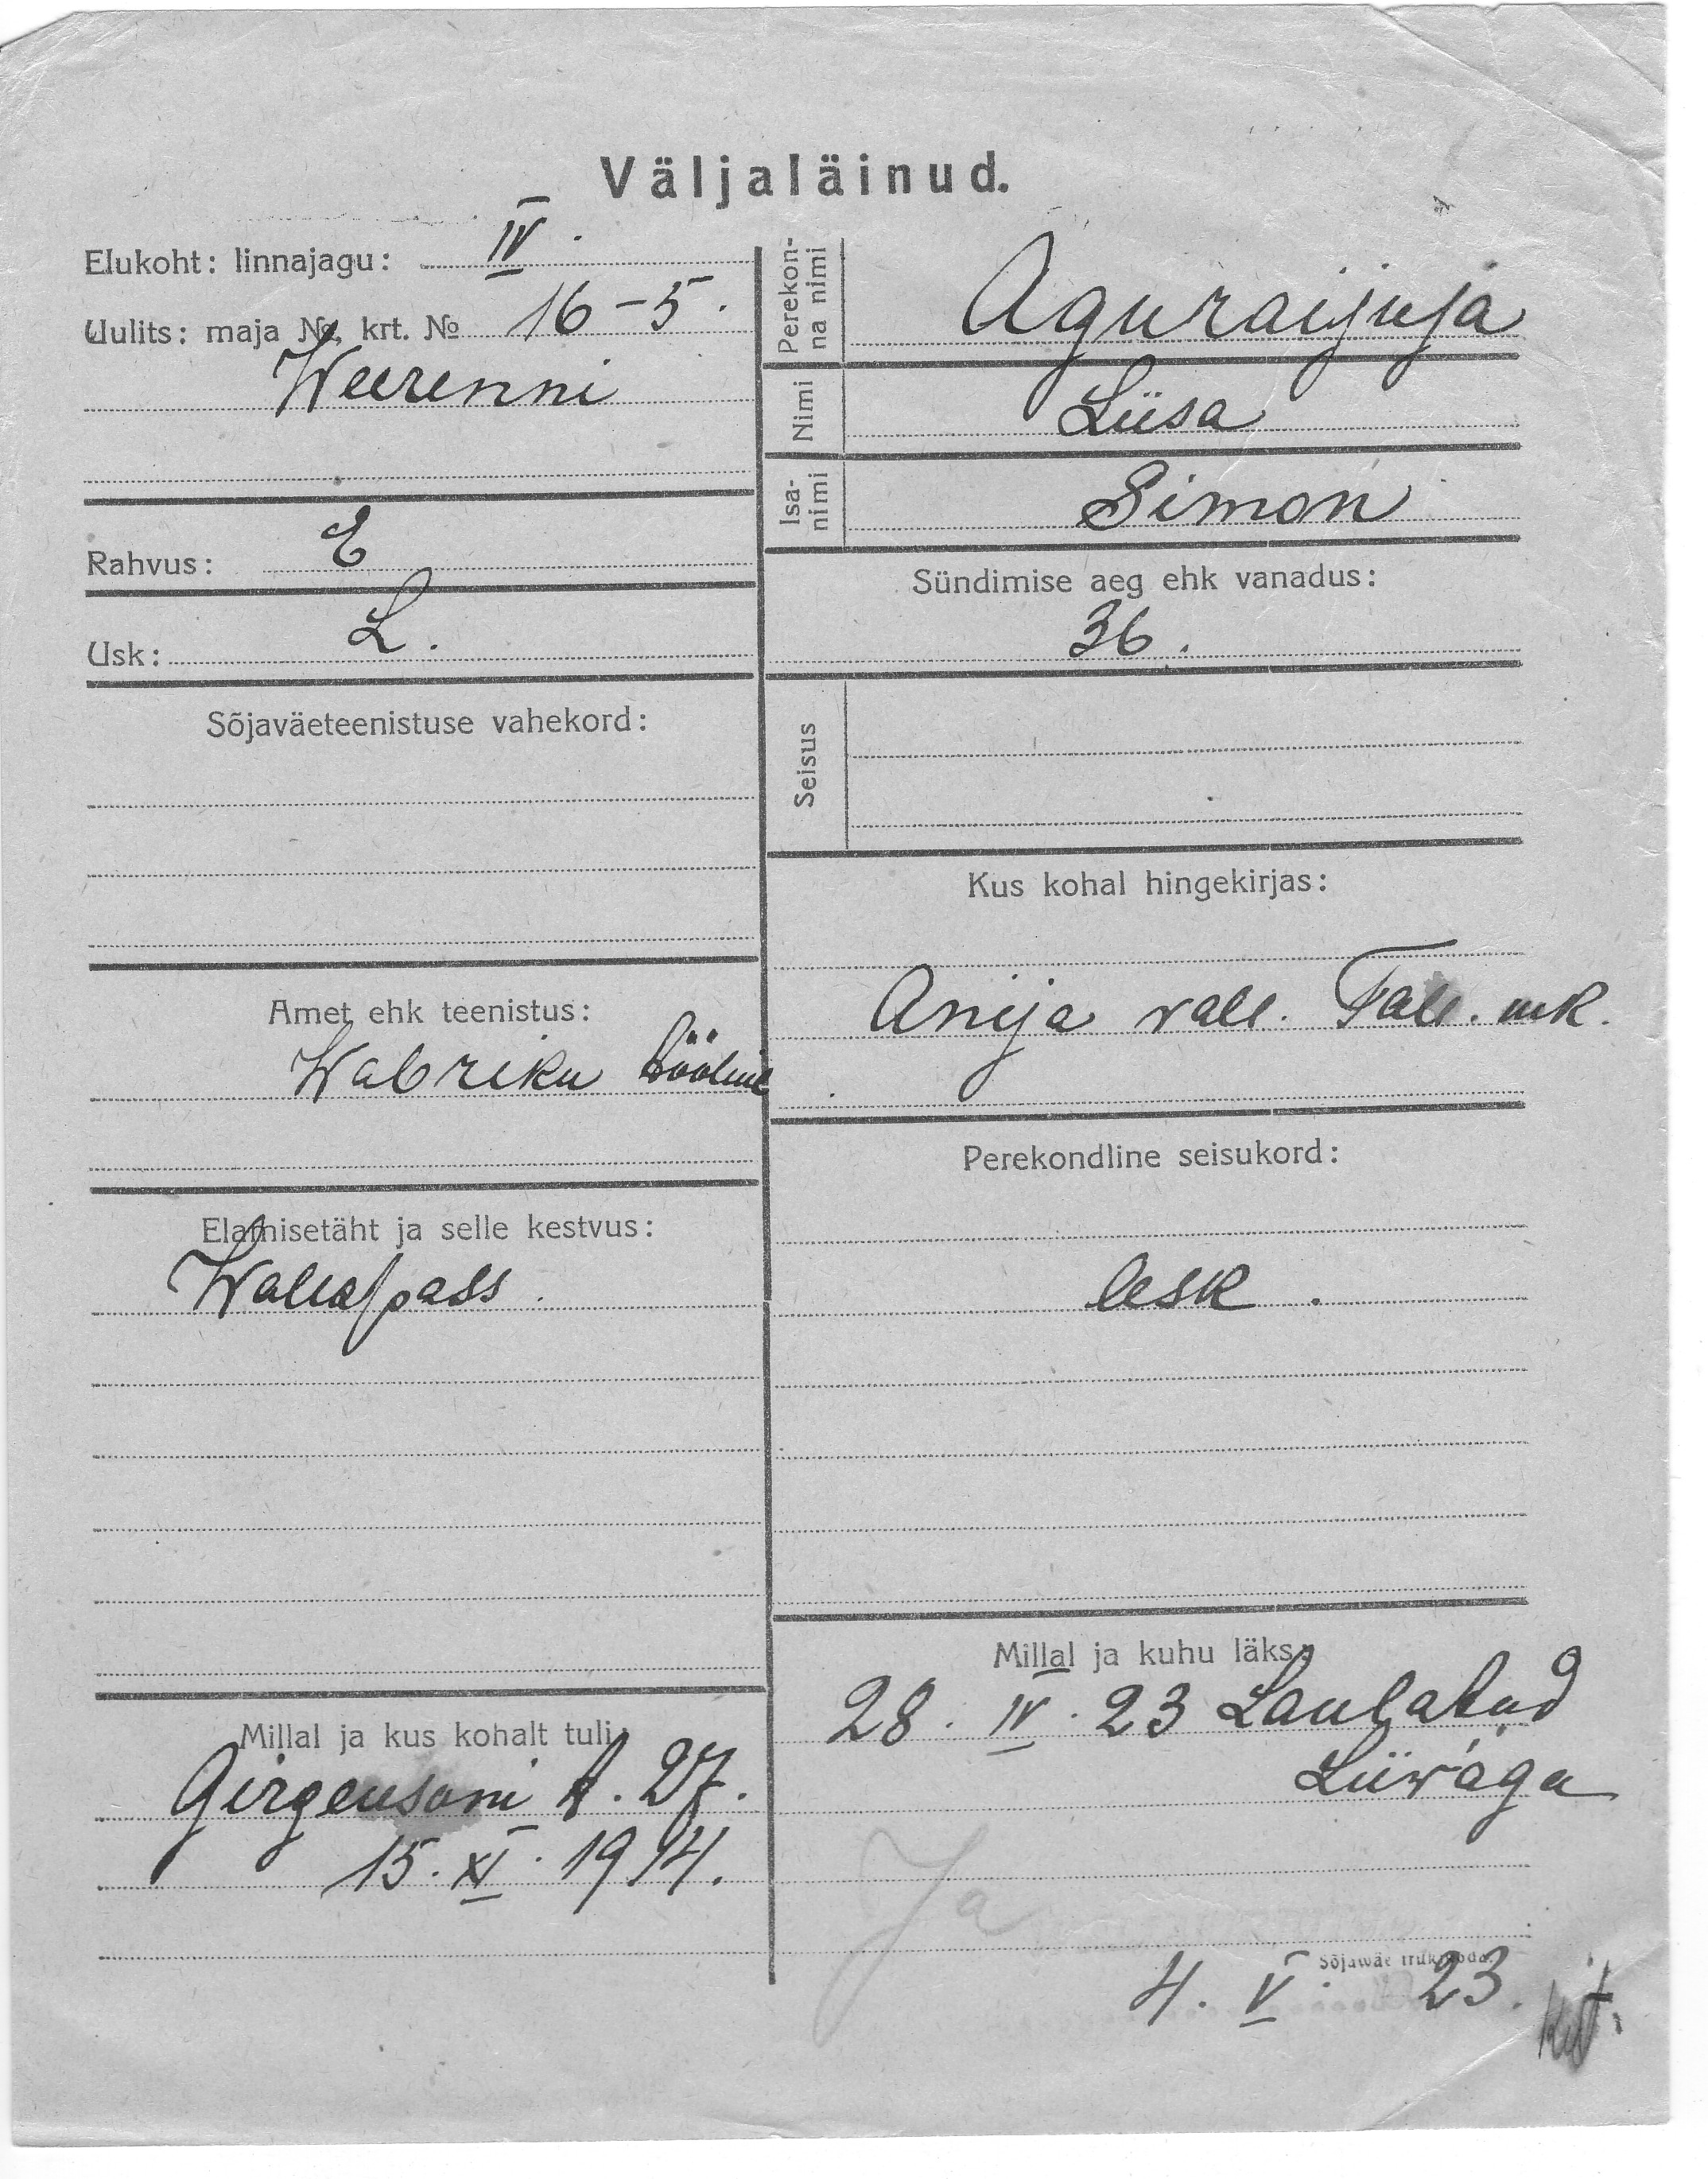 Väljaläinud.
Elukoht: linnajagu: IV.
Uulits: maja №, krt. № 16-5.
Weerenni
Rahvus: E
Usk: L.
Sõjaväeteenistuse vahekord:
Amet ehk teenistus:
Wabriku tööline
Elamisetäht ja selle kestvus:
Wallapass.
Millal ja kus kohalt tuli:
Girgensoni t. 27.
15. XI. 1914.
Perekonna nimi
Aguraijuja
Nimi Liisa
Isanimi Simon
Sündimise aeg ehk vanadus:
36.
Seisus
Kus kohal hingekirjas:
Anija vall. Tall. mk.
Perekondline seisukord:
lesk.
Millal ja kuhu läks:
28. IV. 23 Laulatud
Ja
Sõjawäe trükikoda.
4. V. 23.